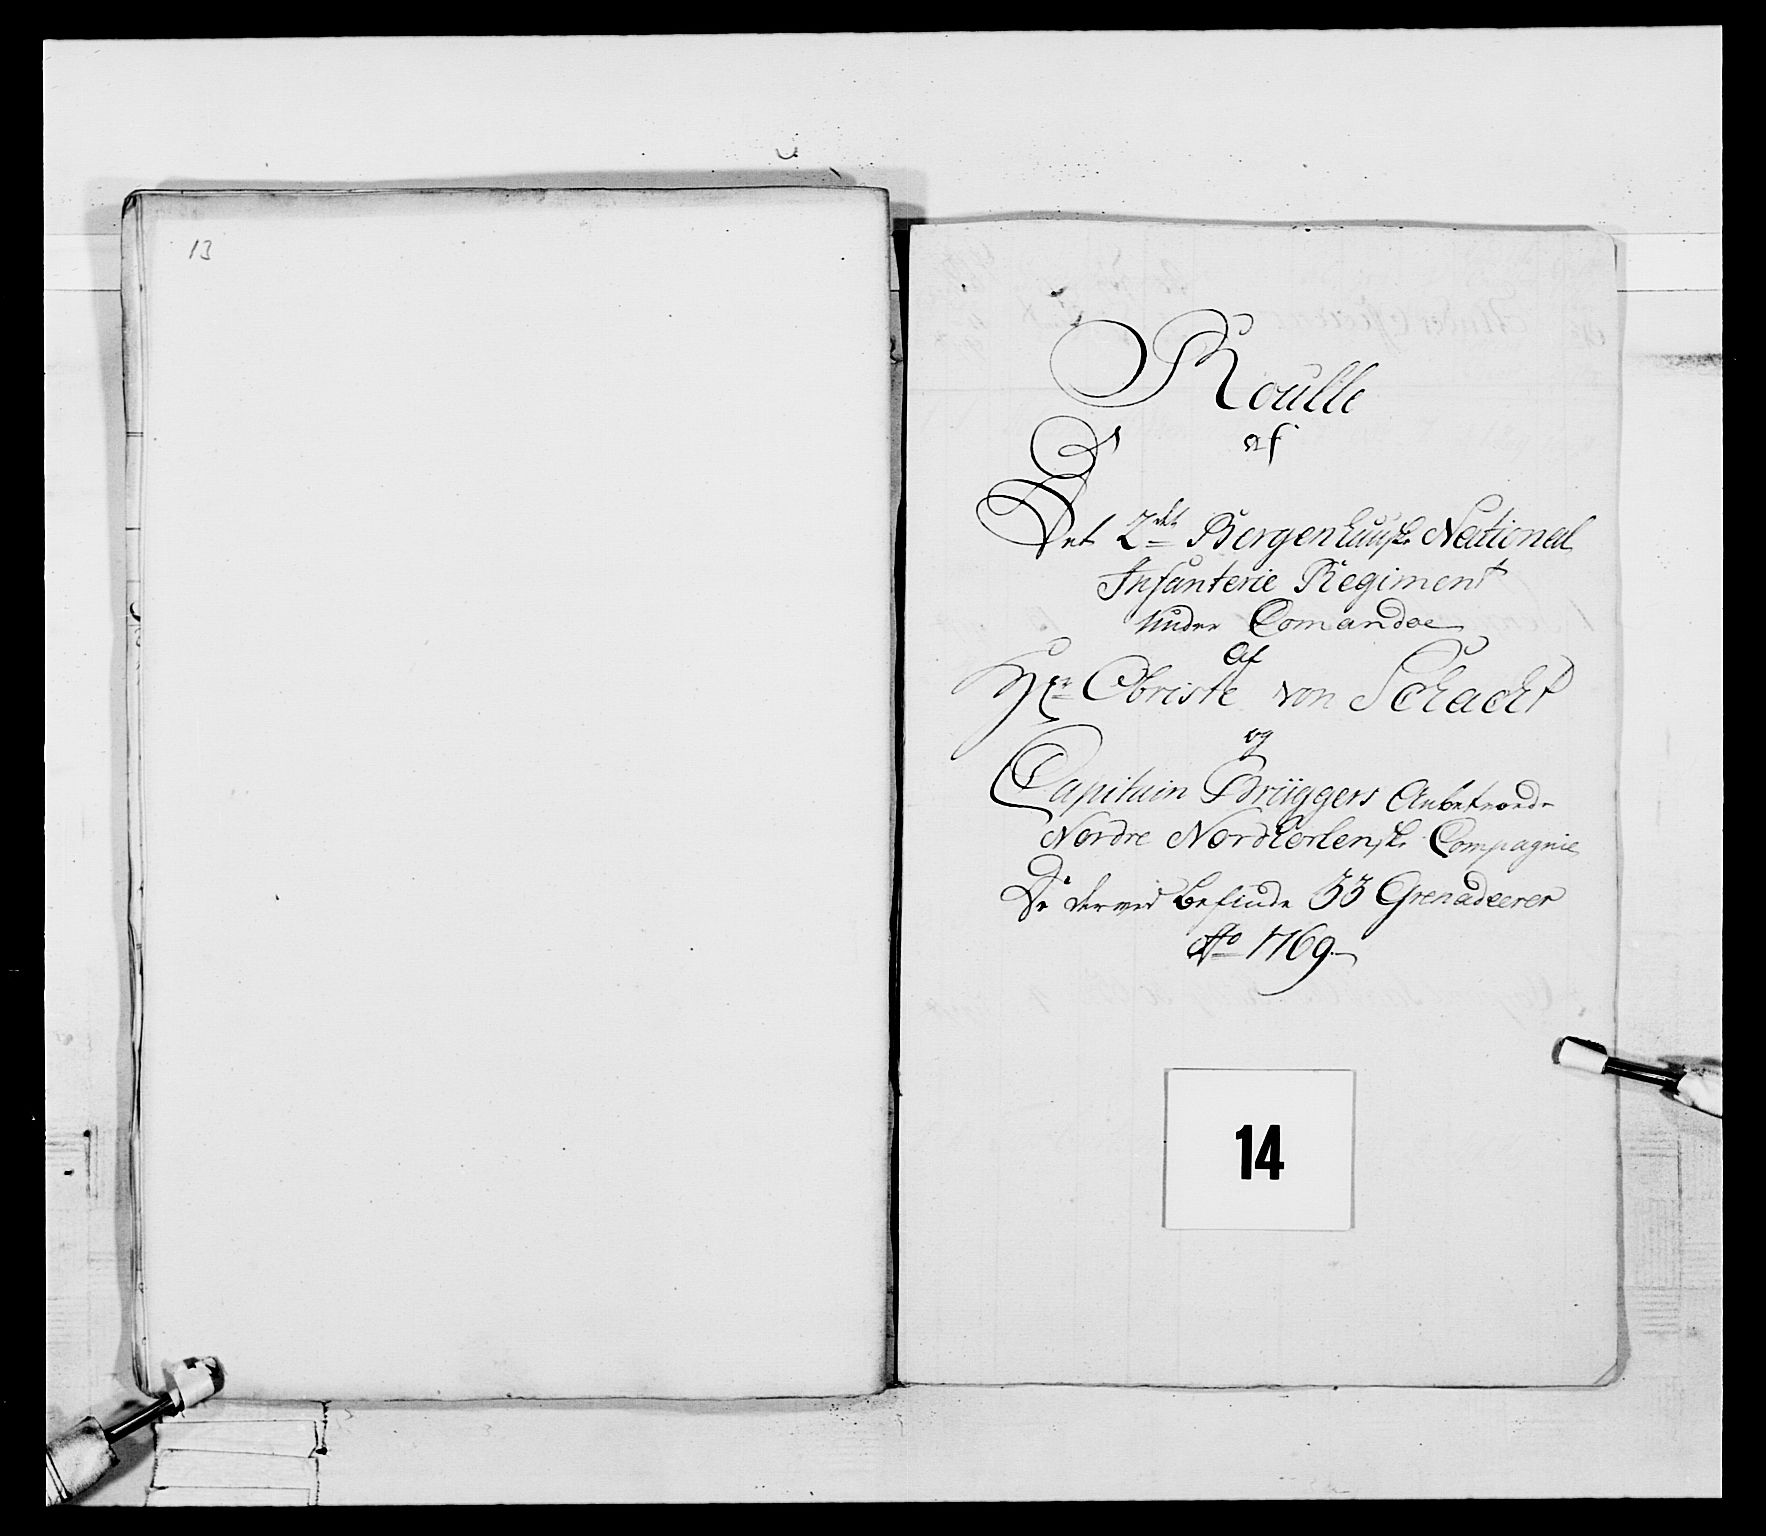 13
Roulle
af
Det 2det Bergenhuusk. National
Infanterie Regiment
Under Comandoe
af
Hr Obriste von Schacht
og
Capitain Brüggers Anbetroede
Nordre Nordhorlensk. Compagnie
De derved befinde 33 Grenadeerer
Ao 1769.
14